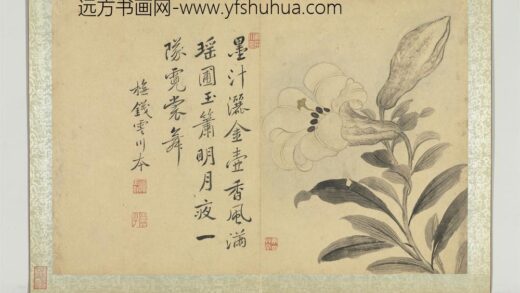 远方书画网- www.yfshuhua.com
墨汁灑金壺香風滿
瑤圃玉簫明月夜一
隊霓裳舞
橅錢霅川本